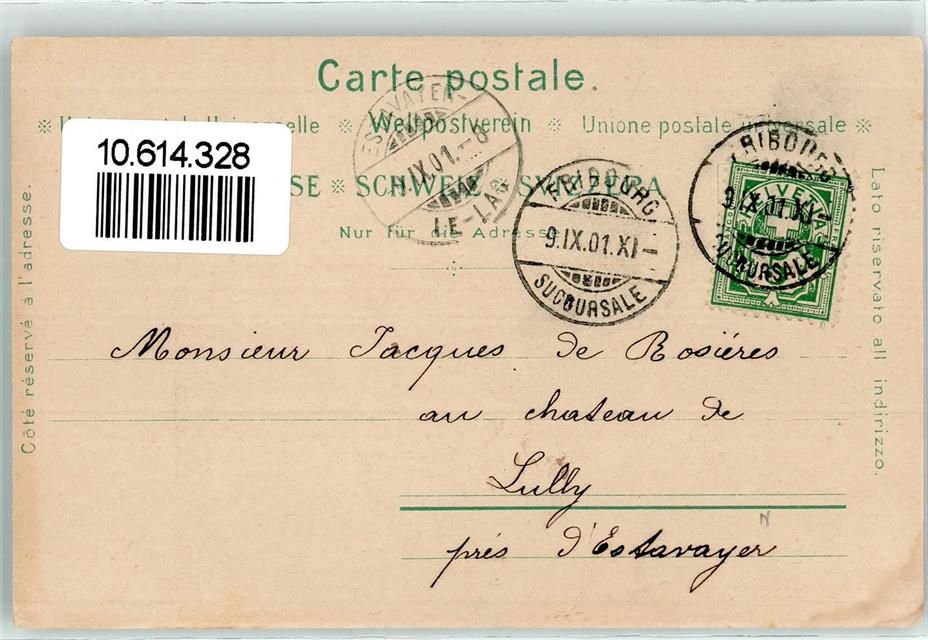 Carte postale.
Universelle ※ Weltpostverein ※ Unione postale universale ※
10.614.328
SSE ※ SCHWEIZ ※ SVIZZERA
Nur für die Adresse
ESTAVAYER-
IX.01.-8
LE-LAC
FRIBOURG
9.IX.01.XI-
SUCCURSALE
FRIBOURG
9.IX.01.XI-
SUCCURSALE
HELVETIA
Côté réservé à l'adresse.
Lato riservato all indirizzo.
Monsieur Jacques de Rosiéres
au chateau de
Lully
prés d'Estavayer